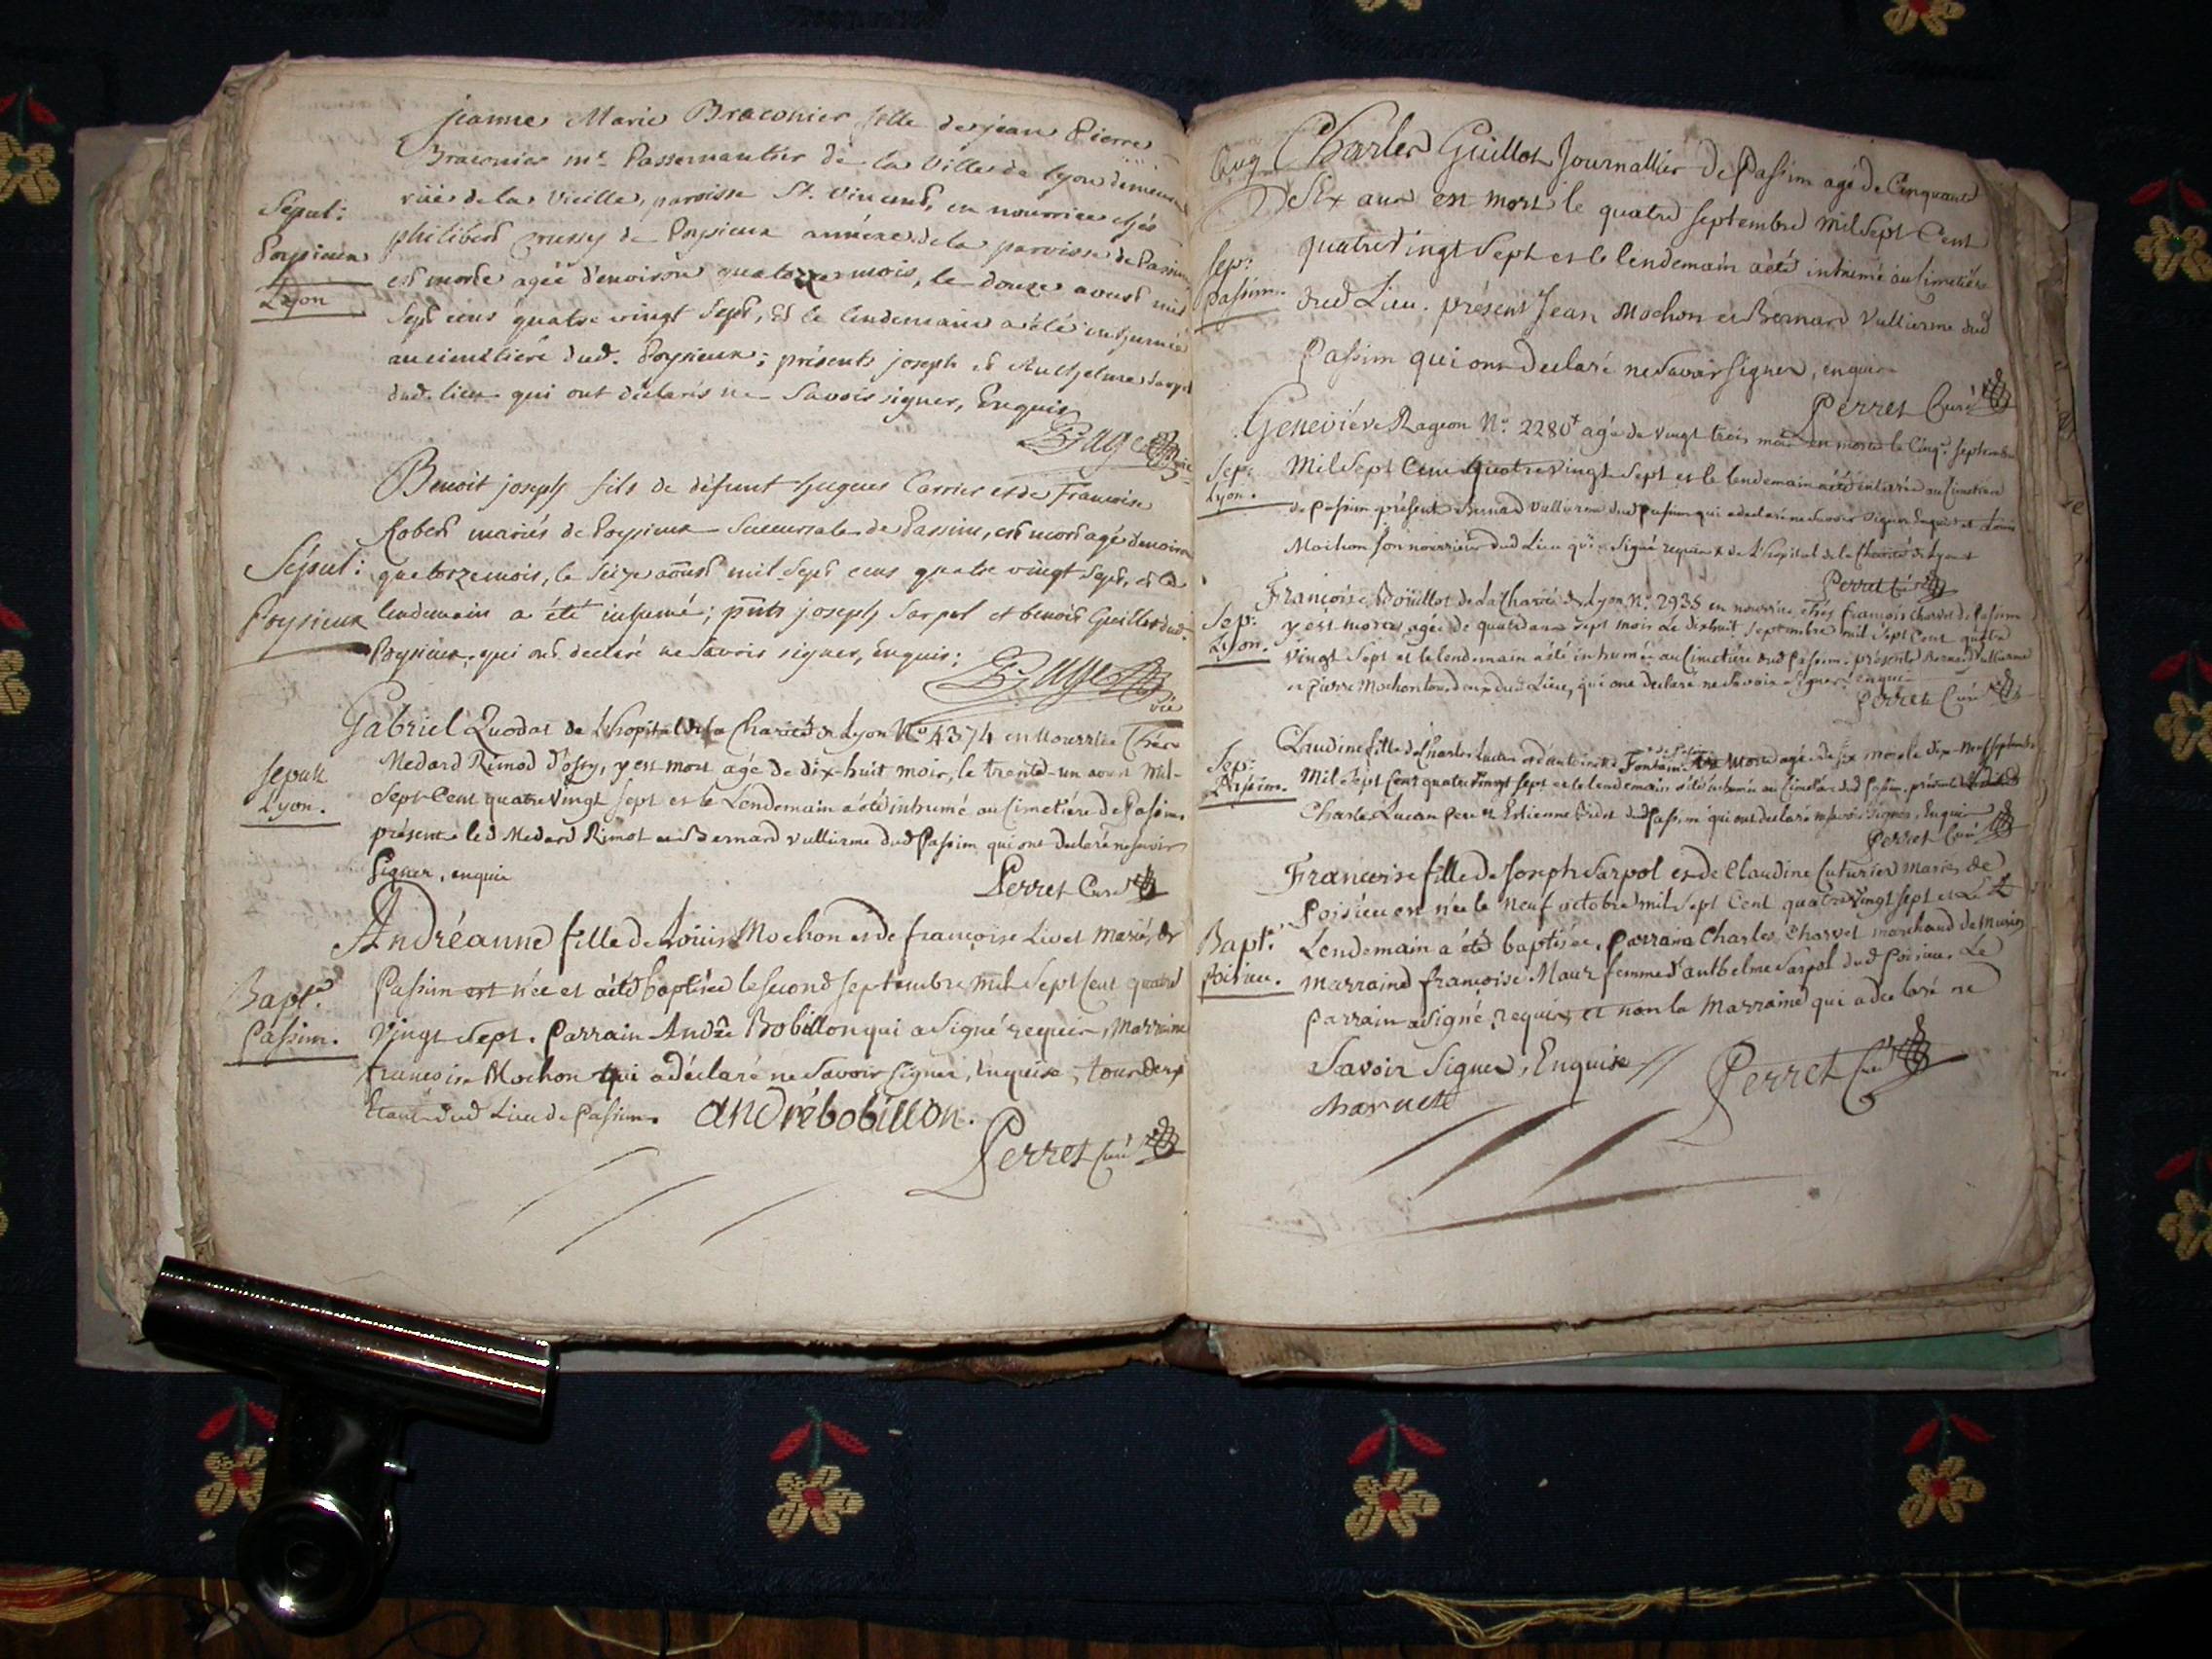 jeanne Marie Braconier fille de jean Pierre
Braconier me. Passementier de la Ville de lyon demeurant
rüe de la Vieille, paroisse St. Vincent, en nourrice chés
Sepul:
philibert de Poysieux annéxe de la paroisse de Passin
Poysieux
est morte agée d'environ quatorze mois, le douze aoust mil
Lyon
Sept cens quatre vingt Sept, Et le lendemain a été inhumée
au cimetiére dud. Poysieux; présents joseph et Anthelme Sarpol
dud. lieu qui ont déclarés ne Savoir signer, Enquis
Benoit joseph fils de défunt hugues Carrier et de Francoise
Robert mariés de Poysieux Succursale de Passin, est mort agé d'environ
Sépul:
quatorze mois, le seize aoust mil Sept cens quatre vingt Sept, et le
Poysieux
lendemain a été inhumé; pnts joseph Sarpol et benoit Guillot dud.
Poysieux, qui ont declaré ne Savoir signer, Enquis;
Gabriel Quodat de l'hopital de la Charité de Lyon No. 4374 en Nourrice Chés
sepult
Medard Rimod d'ossy, y est mort agé de dix-huit mois, le trente-un aoust Mil-
Lyon.
Sept-Cent quatre Vingt sept et le Lendemain a été inhumé au Cimetiére de Passin,
présents led Medard Rimot et Bernard Vullierme dud Passin qui ont declaré ne savoir
Signer, enquis
Perret Curé
Andréanne fille de Louis Mochon et de françoise Livet Mariés de
Bapt.
Passin est née et a été baptisée le second septembre Mil Sept Cent quatre
Passin.
Vingt Sept. Parrain André Bobillon qui a Signé requis, Marraine
francoise Mochon qui a déclaré ne Savoir signer, Enquise, tous deux
Etant dud Lieu de Passin. andrébobillon.
Perret Curé
Charles Guillot Journallier de Passin agé de Cinquante
Six ans est mort le quatre septembre Mil Sept Cent
Sep:
quatre Vingt Sept et le lendemain a été inhumé au Cimetiére
Passin.
dud Lieu. présent Jean Mochon et Bernard Vullierme dud
Passin qui ont Declaré ne Savoir signer, enquis
Perret Curé
Geneviéve Rageon No. 2280 agée de vingt trois mois est morte le Cinq septembre
Sep:
Mil Sept Cent Quatre Vingt Sept et le lendemain a été enterrée au Cimetiére
Lyon.
de Passin présents Bernard Vullierme dud Passin qui a declaré ne Savoir signer Enquis et Louis
Mochon son nourricier dud Lieu qui a Signé requis de L'hopital de la Charité de Lyon
Perret Curé
Françoise de la Charité de Lyon No. 2935 en nourrice chés françois Charvet de Passin
Sep:
y est morte agée de quatre ans sept mois Le dixhuit Septembre mil Sept Cent quatre
Lyon.
Vingt Sept et le lendemain a été inhumée au Cimetiére dud Passin. présents Bernard Vullierme
et Pierre Mochon tous deux dud Lieu, qui ont declaré ne Savoir Signer enquis
Perret Curé
Claudine fille de Charles Lucan et d'antoinette Fontaine de Passin morte agée de six mois le dix-Neuf septembre
Sep:
Mil Sept Cent quatre Vingt Sept et le lendemain a été inhumée au Cimetiére dud Passin. présents
Passin.
Charles Lucan pere et Estienne dud Passin qui ont declaré ne savoir signer, Enquis
Perret Curé
Francoise fille de Joseph Sarpol et de Claudine Cuturier Mariés de
Poisieu est née le Neuf octobre mil Sept Cent quatre Vingt sept et Le
Bapt.
Lendemain a été baptisée. Parrain Charles Charvet marchand de
Poisieu.
Marraine françoise Maur femme d'anthelme Sarpol dud Poisieu. Le
Parrain a Signé, requis et non la Marraine qui a declaré ne
Savoir Signer, Enquise // Perret Curé
Charvet